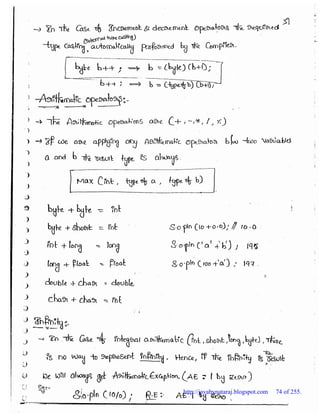 51
→ In the Case of Increment & decrement operators the required
(internal type casting)
type casting, automatically performed by the Compiler.
byte b++ ; ⟹ b = (byte)(b+1);
b++ ; ⟹ b = (type of b)(b+1);
Arithmetic operators:-
→ The Arithmetic operations are (+, -, *, /, %)
→ If we are applying any Arithmetic operator b/w two variables
a and b the result type is always
Max (int, type of a, type of b)
byte + byte = int
S.o.pln (10+0.0); // 10.0
byte + short = int
int + long = long
S.o.pln ('a' + 'b'); 195
long + float = float
S.o.pln (100 + 'a'); 197.
double + char = double
char + char = int
Infinity:-
→ In the Case of Integral arithmetic (int, short, long, byte), There
is no way to represent Infinity. Hence, if the infinity is the result
We will always get ArithmeticException. (AE: / by zero)
Eg:-
S.o.pln (10/0); R.E: AE: / by zero.
http://javabynataraj.blogspot.com 74 of 255.